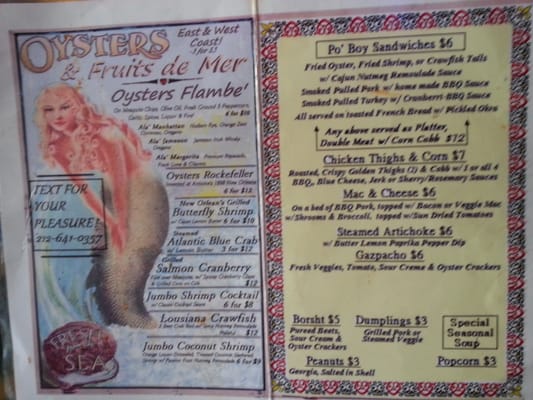 Oysters
East & West
Coast!
3 for $5
& Fruits de Mer
Oysters Flambe'
On Mesquite Chips, Olive Oil, Fresh Ground 3 Peppercorn,
Garlic, Spices, Liquor & Fire! 6 for $10
Ala' Manhattan
Ala' Jamecan
Ala' Margarita
Oysters Rockefeller
Invented at Antoine's 1898 New Orleans
6 for $12
New Orlean's Grilled
Butterfly Shrimp
6 for $10
Steamed
Atlantic Blue Crab
w/ Lemon Butter 3 for $12
Grilled
Salmon Cranberry
& Grilled Corn on Cob $12
Jumbo Shrimp Cocktail
w/ Classic Cocktail Sauce 6 for $8
Lousiana Crawfish
$12
Jumbo Coconut Shrimp
6 for $9
TEXT FOR
YOUR
PLEASURE!
212-641-0357
FRESH
SEA
Po' Boy Sandwiches $6
Fried Oyster, Fried Shrimp, or Crawfish Tails
w/ Cajun Nutmeg Remoulade Sauce
Smoked Pulled Pork w/ home made BBQ Sauce
Smoked Pulled Turkey w/ Cranberri-BBQ Sauce
All served on toasted French Bread w/ Pickled Okra
Any above served as Platter,
Double Meat w/ Corn Cobb $12
Chicken Thighs & Corn $7
Roasted, Crispy Golden Thighs (2) & Cobb w/ 1 or all 4
BBQ, Blue Cheese, Jerk or Sherry/Rosemary Sauces
Mac & Cheese $6
On a bed of BBQ Pork, topped w/ Bacon or Veggie Mac
w/Shrooms & Broccoli, topped w/Sun Dried Tomatoes
Steamed Artichoke $6
w/ Butter Lemon Paprika Pepper Dip
Gazpacho $6
Fresh Veggies, Tomato, Sour Creme & Oyster Crackers
Borsht $5
Pureed Beets,
Sour Cream &
Oyster Crackers
Dumplings $3
Grilled Pork or
Steamed Veggie
Special
Seasonal
Soup
Peanuts $3
Georgia, Salted in Shell
Popcorn $3